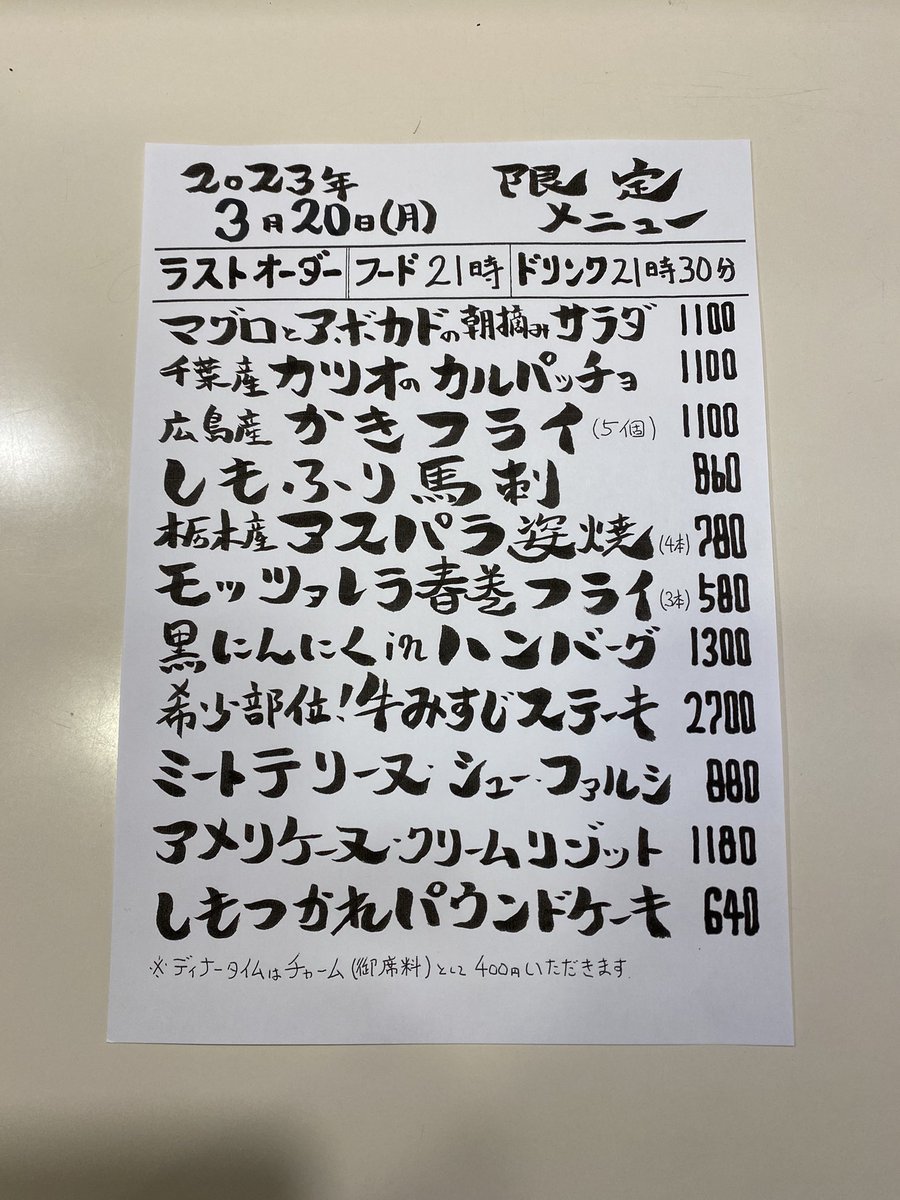 2023年
3月20日(月)
限定
メニュー
ラストオーダー フード21時 ドリンク21時30分
マグロとアボカドの朝摘みサラダ 1100
千葉産カツオのカルパッチョ 1100
広島産かきフライ(5個) 1100
しもふり馬刺 860
栃木産アスパラ姿焼(4本) 780
モッツァレラ春巻フライ(3本) 580
黒にんにくinハンバーグ 1300
希少部位!牛みすじステーキ 2700
ミートテリーヌ・シュー・ファルシ 880
アメリケーヌ・クリームリゾット 1180
しもつかれパウンドケーキ 640
※ディナータイムはチャーム(御席料)として400円いただきます。